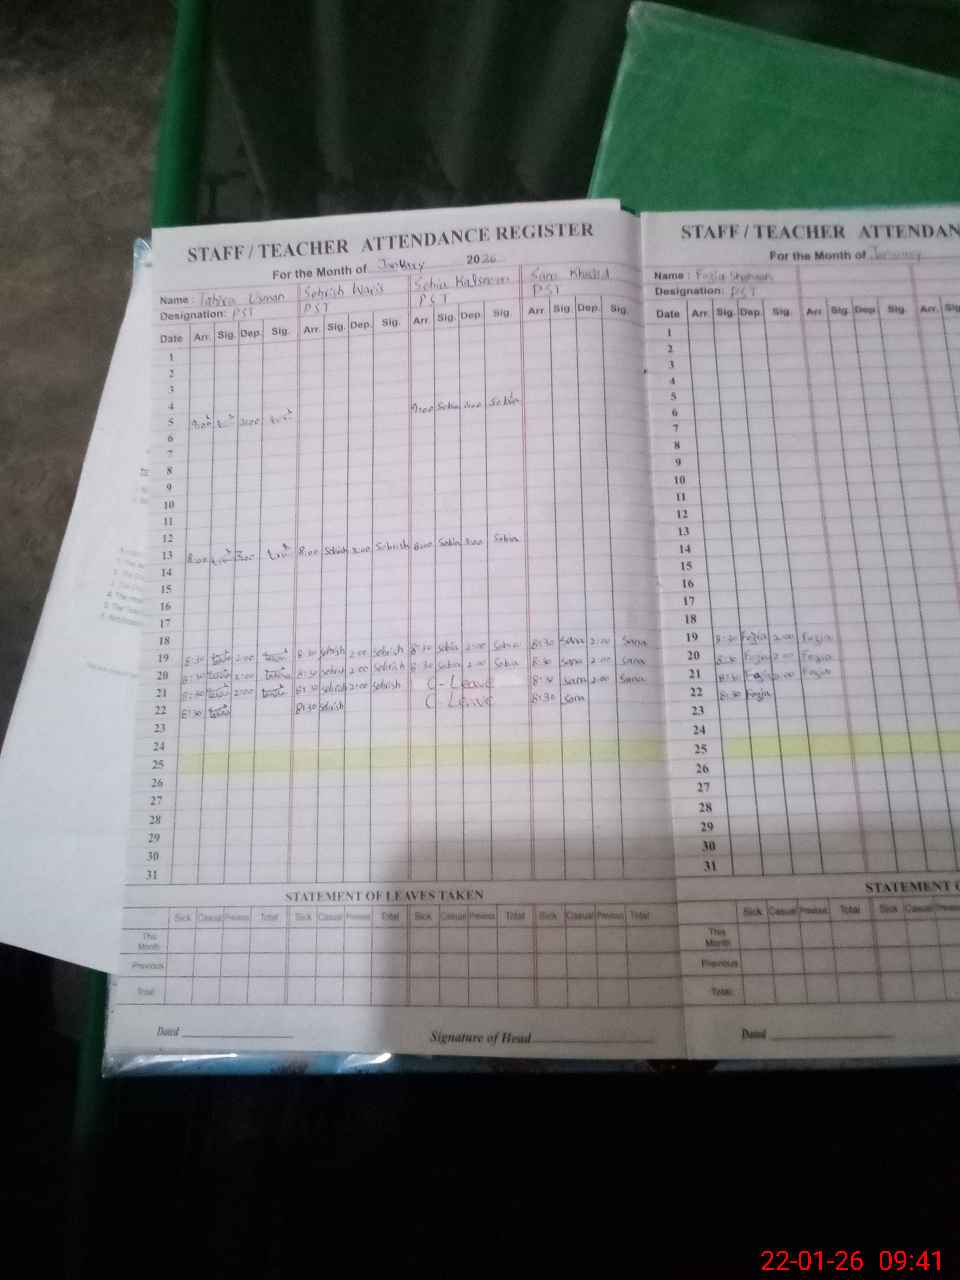 STAFF / TEACHER ATTENDANCE REGISTER
For the Month of January 2026
Name : Tahira Usman Sehrish Waris Sobia Kalsoom Sana Khalid
Designation: PST PST PST PST
Date Arr. Sig. Dep. Sig. Arr. Sig. Dep. Sig. Arr. Sig. Dep. Sig. Arr. Sig. Dep. Sig.
1
2
3
4
5 9:00 2:00 9:00 Sobia 2:00 Sobia
6
7
8
9
10
11
12
13 8:00 3:00 8:00 Sehrish 3:00 Sehrish 8:00 Sobia 3:00 Sobia
14
15
16
17
18
19 8:30 2:00 8:30 Sehrish 2:00 Sehrish 8:30 Sobia 2:00 Sobia 8:30 Sana 2:00 Sana
20 8:30 2:00 8:30 Sehrish 2:00 Sehrish 8:30 Sobia 2:00 Sobia 8:30 Sana 2:00 Sana
21 8:30 2:00 8:30 Sehrish 2:00 Sehrish C-Leave 8:30 Sana 2:00 Sana
22 8:30 8:30 Sehrish C-Leave 8:30 Sana
23
24
25
26
27
28
29
30
31
STATEMENT OF LEAVES TAKEN
Sick Casual Previous Total Sick Casual Previous Total Sick Casual Previous Total Sick Casual Previous Total
This Month
Previous
Total
Dated
Signature of Head
STAFF / TEACHER ATTENDAN
For the Month of January
Name : Fozia Shaheen
Designation: PST
Date Arr. Sig. Dep. Sig. Arr. Sig. Dep. Sig. Arr. Sig
1
2
3
4
5
6
7
8
9
10
11
12
13
14
15
16
17
18
19 8:30 Fozia 2:00 Fozia
20 8:30 Fozia 2:00 Fozia
21 8:30 Fozia 2:00 Fozia
22 8:30 Fozia
23
24
25
26
27
28
29
30
31
STATEMENT O
Sick Casual Previous Total Sick Casual Previous
This Month
Previous
Total
Dated
22-01-26 09:41